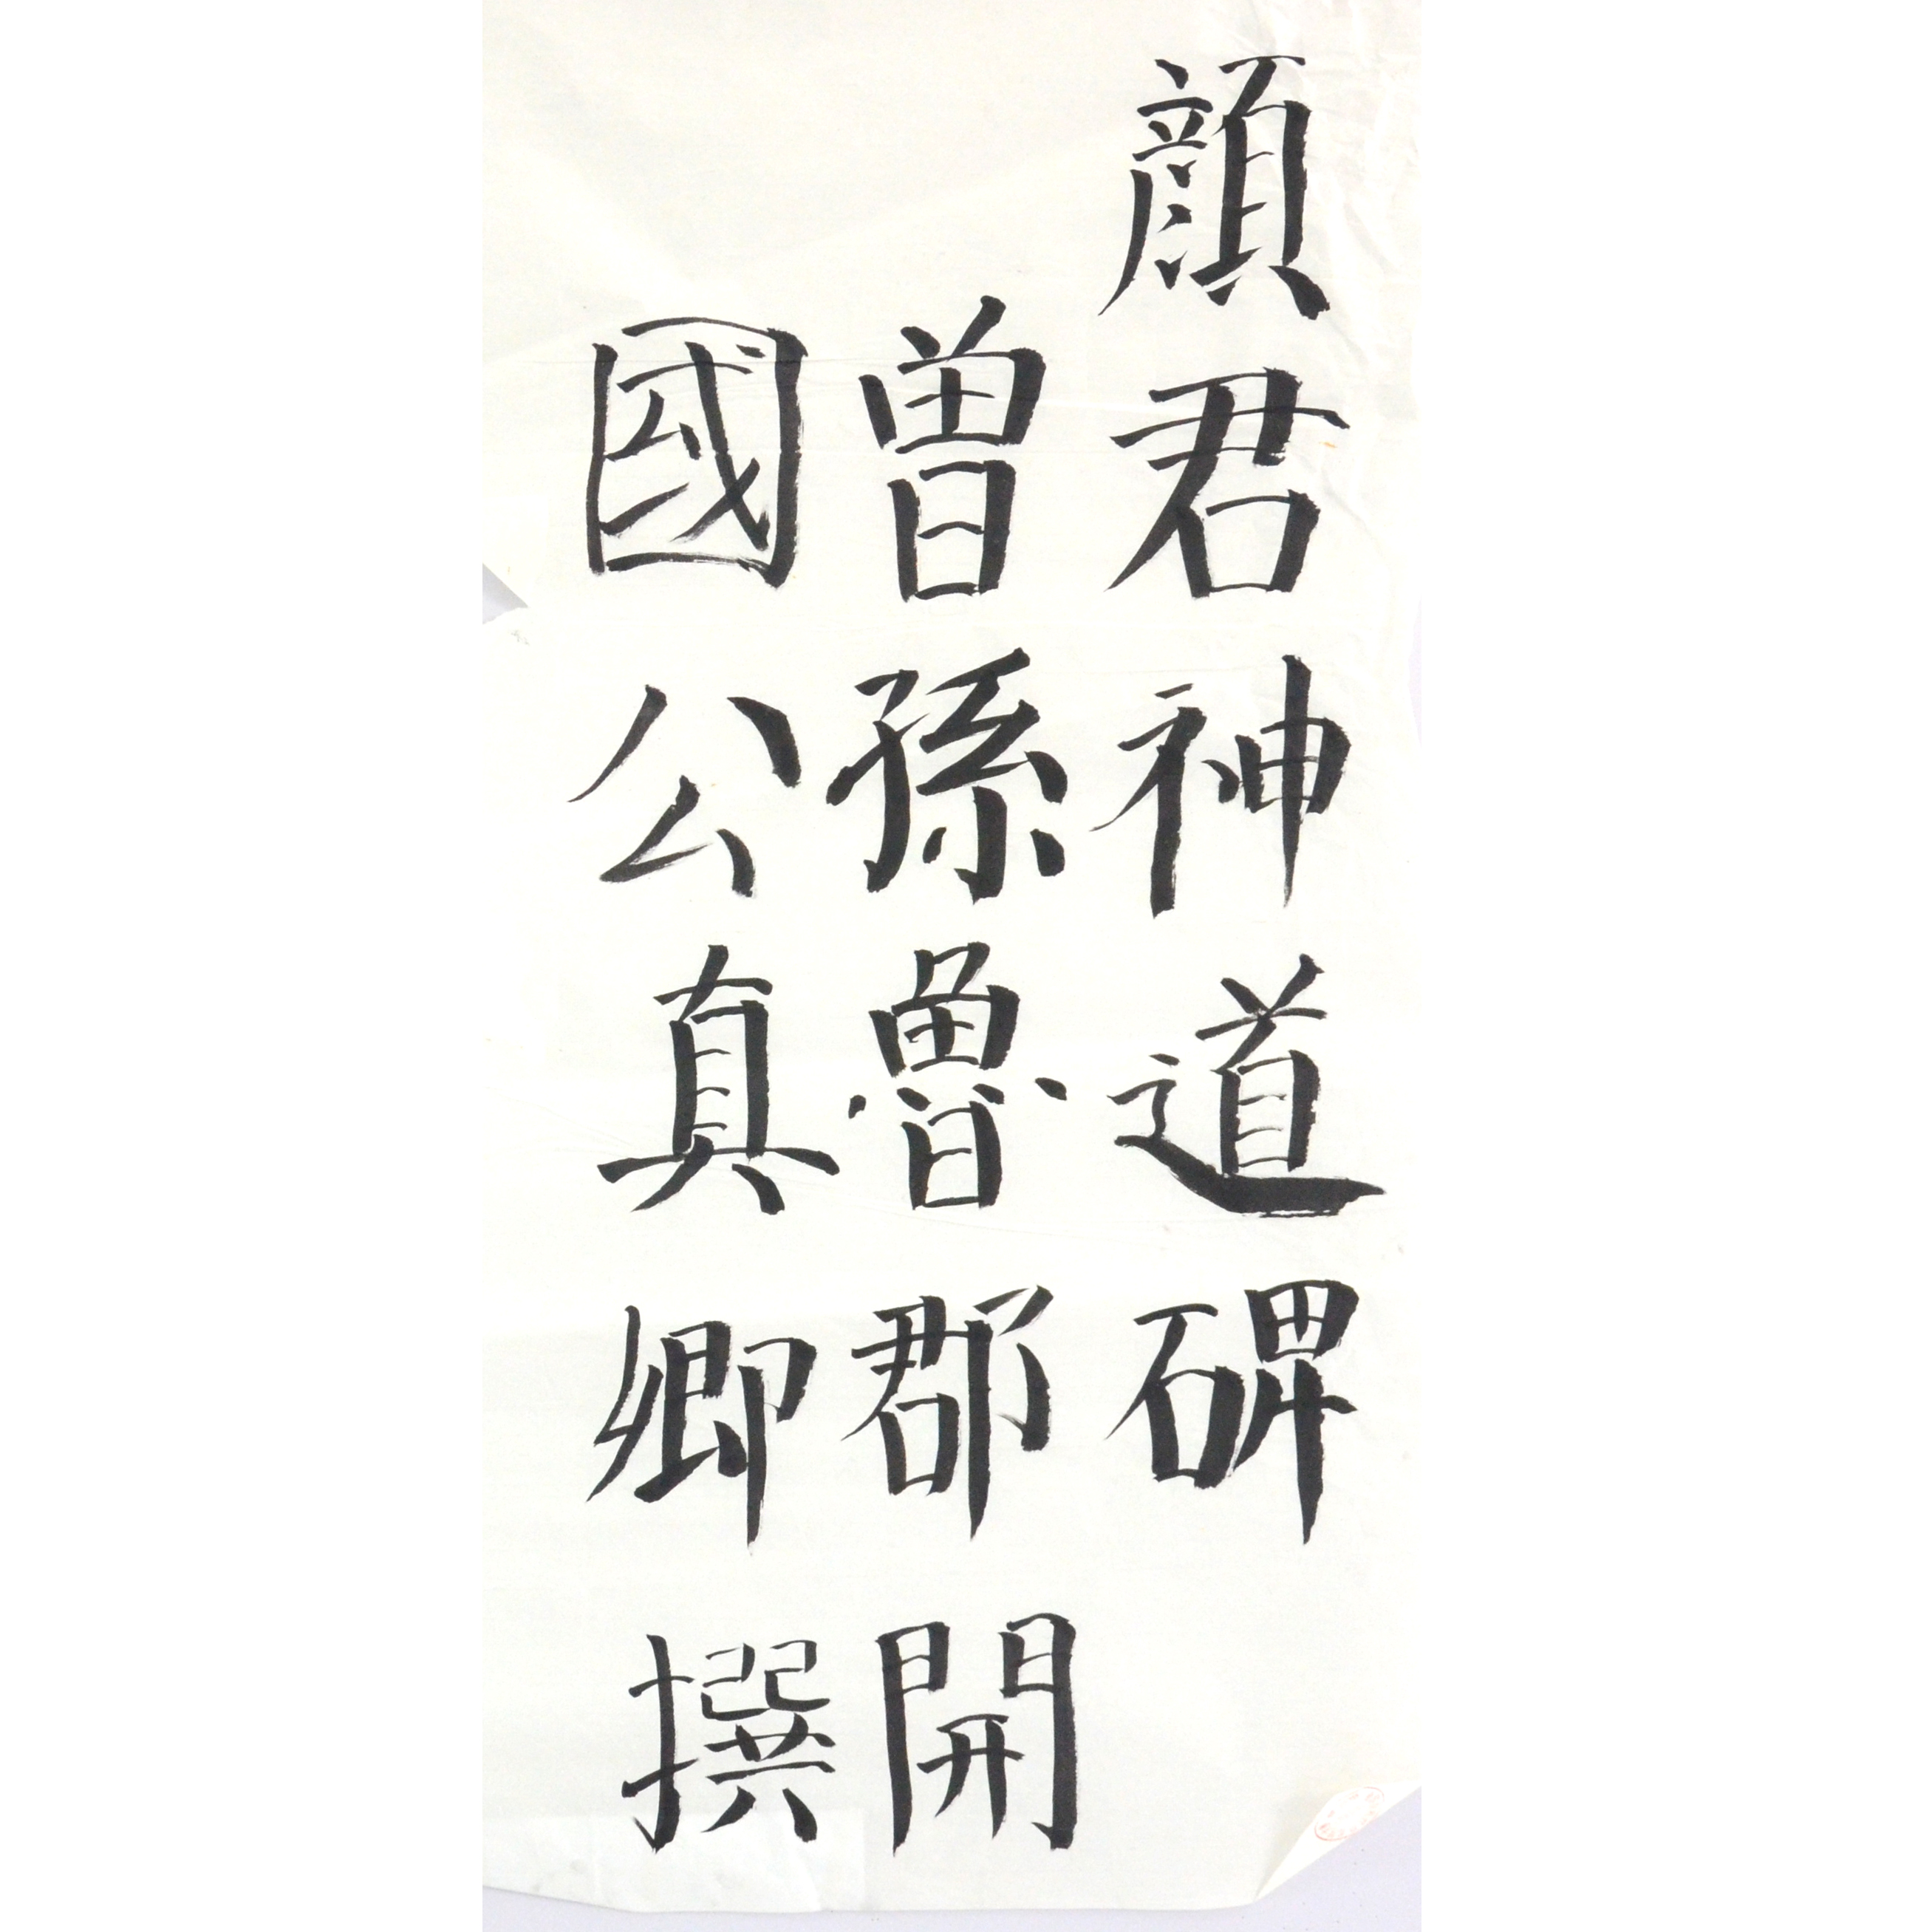 顔君神道碑
曽孫魯郡開
國公真卿撰